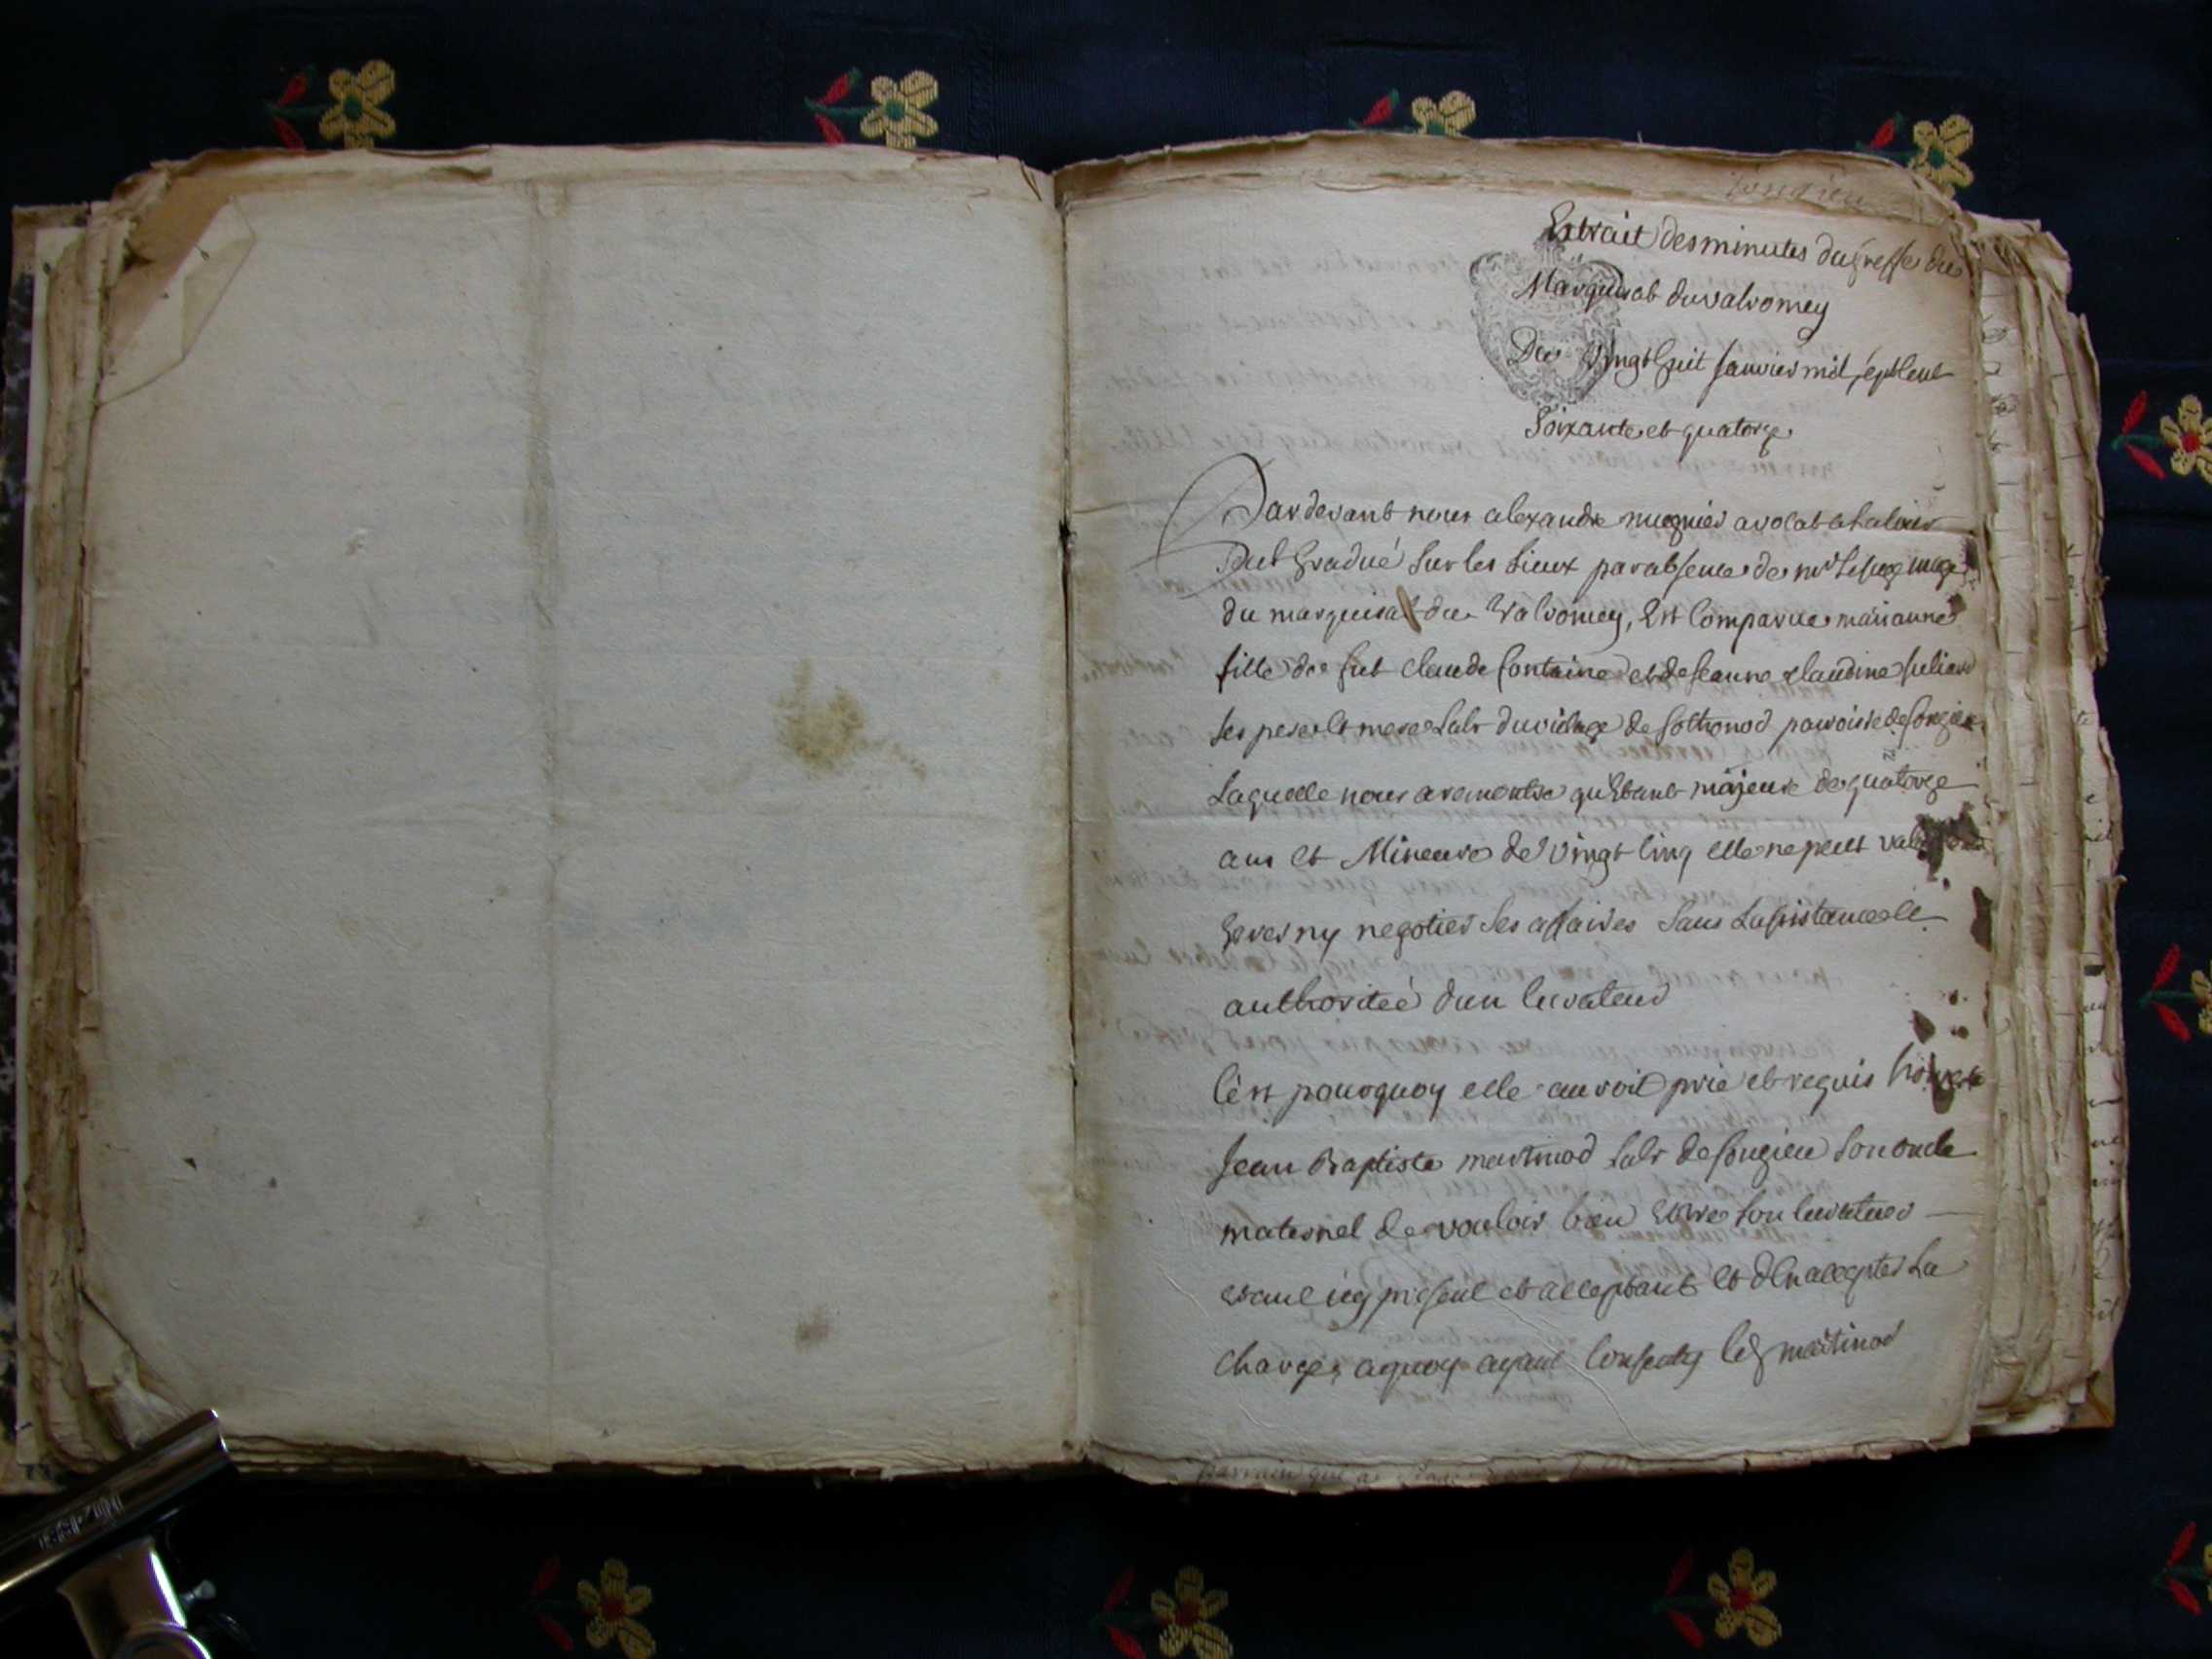 Extrait des minutes du greffe du
Marquisat du valromey
Du vingt huit janvier mil sept cent
soixante et quatorze
Pardevant nous alexandre avocat
seul Gradué sur les lieux par absence de mr le juge mage
du marquisat du Valromey, Est comparue marianne
fille de fut claude fontaine et de jeanne claudine juliand
ses pere et mere habt du village de sothonod parroisse de songieu
Laquelle nous a remontré qu'Etant majeure de quatorze
ans et Mineure de vingt cinq elle ne peut
gerer ny negotier ses affaires sans Lassistance et
authoritée d'un curateur
C'est pourquoy elle auroit prié et requis honeste
jean Baptiste martinod habt de songieu son oncle
maternel de vouloir bien Estre son curateur
etant icy present et acceptant et d'En accepter la
charge; aquoy ayant consenty led martinod